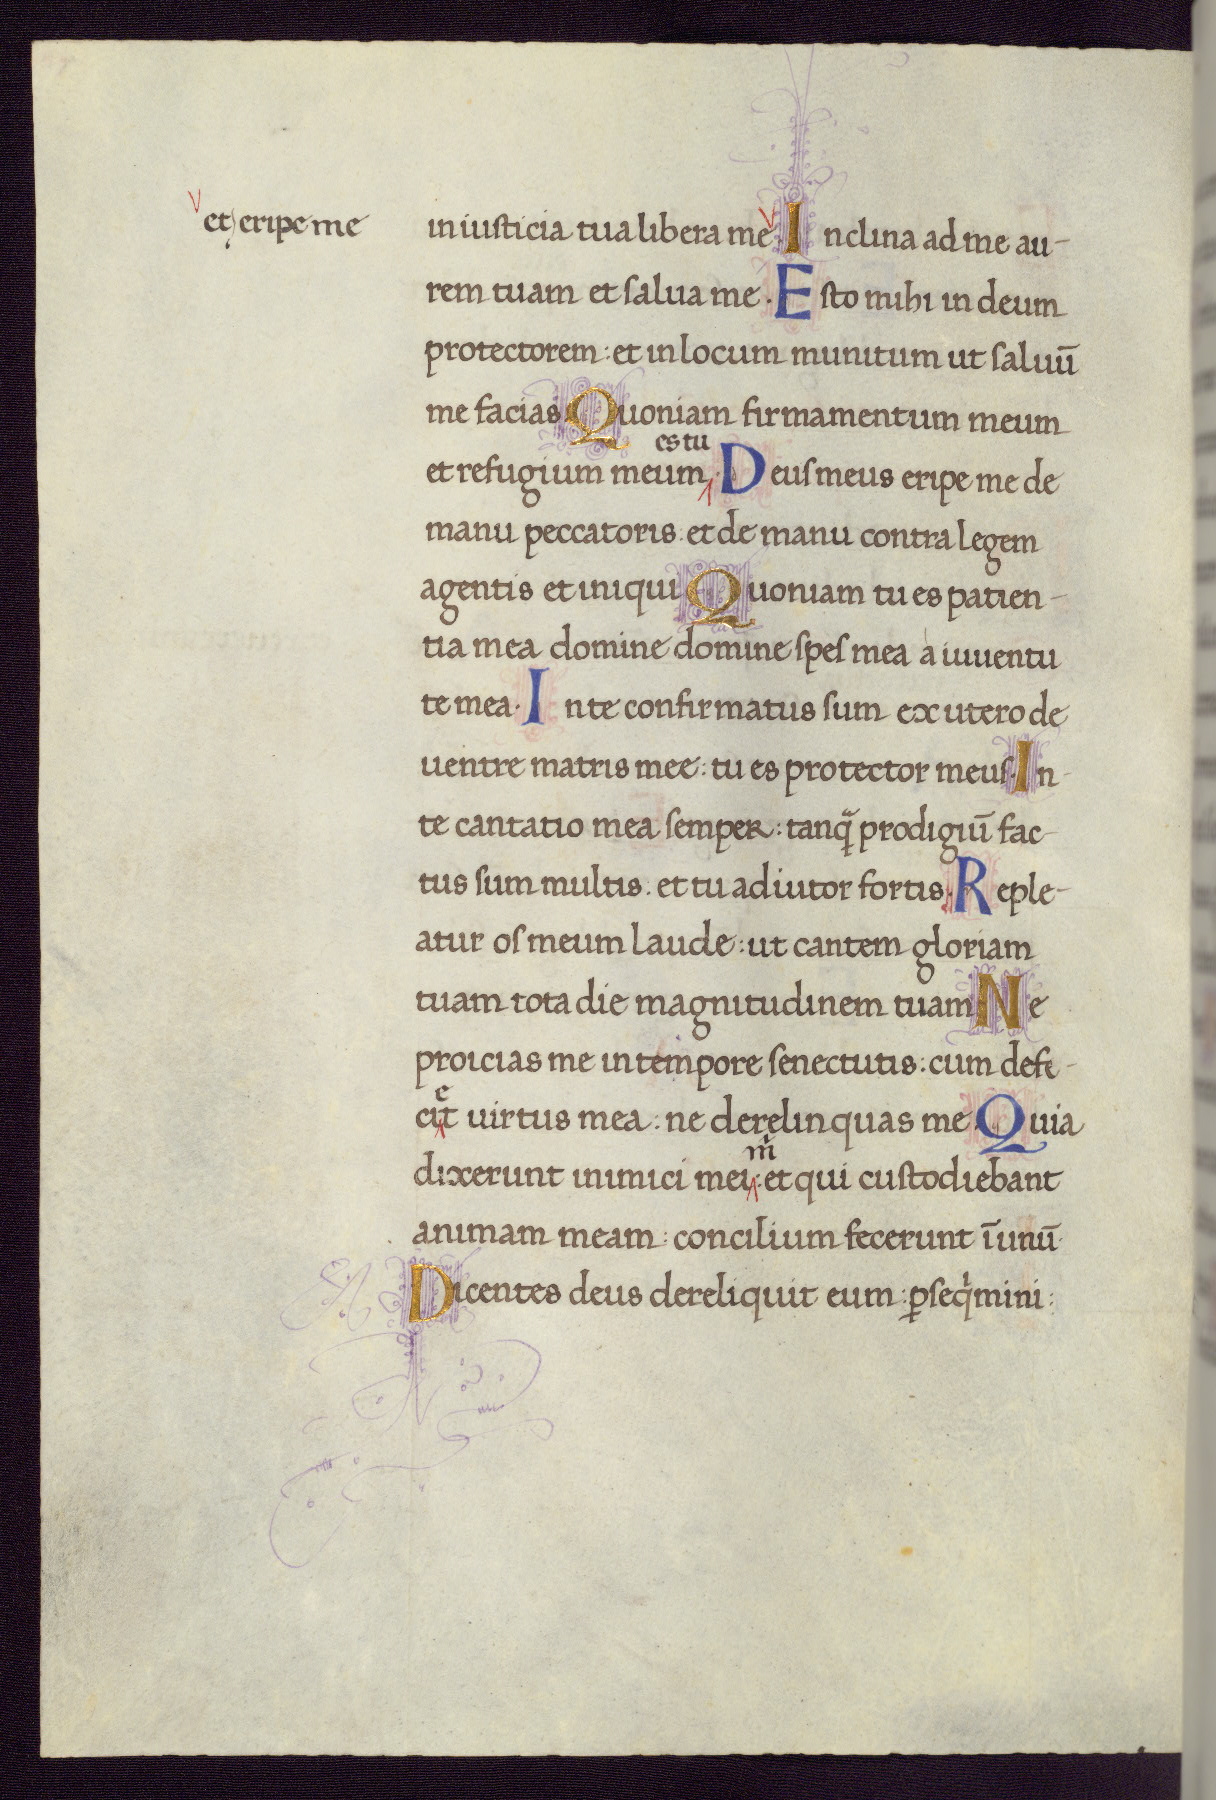 et eripe me
in iusticia tua libera me. Inclina ad me au-
rem tuam et salua me. Esto mihi in deum
protectorem: et in locum munitum ut saluū
me facias. Quoniam firmamentum meum
es tu
et refugium meum. Deus meus eripe me de
manu peccatoris: et de manu contra legem
agentis et iniqui Quoniam tu es patien-
tia mea domine domine spes mea a iuuentu
te mea. In te confirmatus sum ex utero de
uentre matris mee: tu es protector meus. In-
te cantatio mea semper: tanq̃ prodigiū fac-
tus sum multis: et tu adiutor fortis. Reple-
atur os meum laude: ut cantem gloriam
tuam tota die magnitudinem tuam Ne
proicias me in tempore senectutis: cum defe-
e
cit uirtus mea: ne derelinquas me. Quia
m̄
dixerunt inimici mei: et qui custodiebant
animam meam: concilium fecerunt ī unū
Dicentes deus dereliquit eum: ꝑseq̇mini: